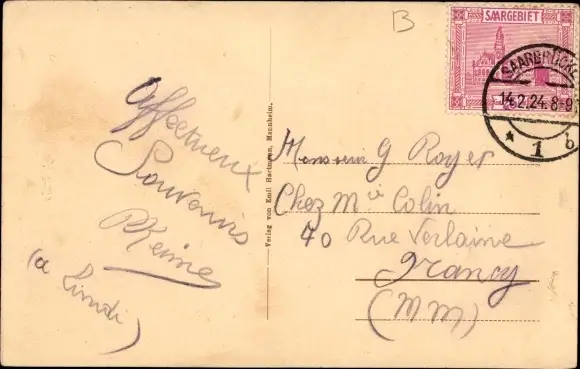 B
SAARGEBIET
SAARBRÜCKE
14.2.24.8-9
* 1 b
Affectueux
Souvenirs
(a Lundi)
Verlag von Emil Hartmann, Mannheim.
Monsieur G Royer
Chez Mie Colin
70 Rue Verlaine
Nancy
(MM)